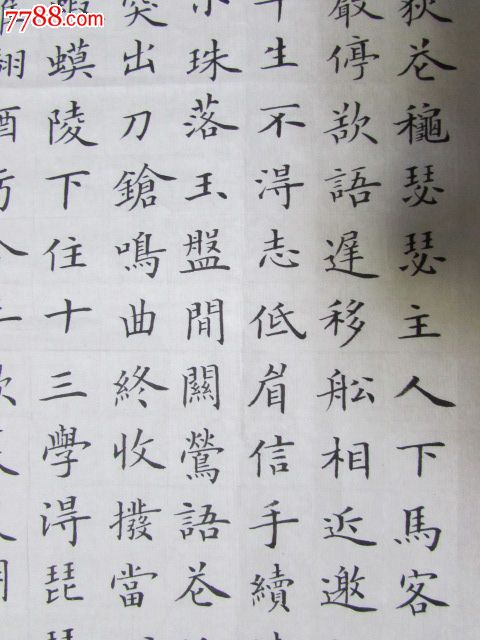 7788.com
花穐瑟瑟主人下馬客
停欲語遲移舩相近邀
生不得志低眉信手續
珠落玉盤間關鶯語花
突出刀鎗鳴曲終收撥當
蝦蟆陵下住十三學得琵